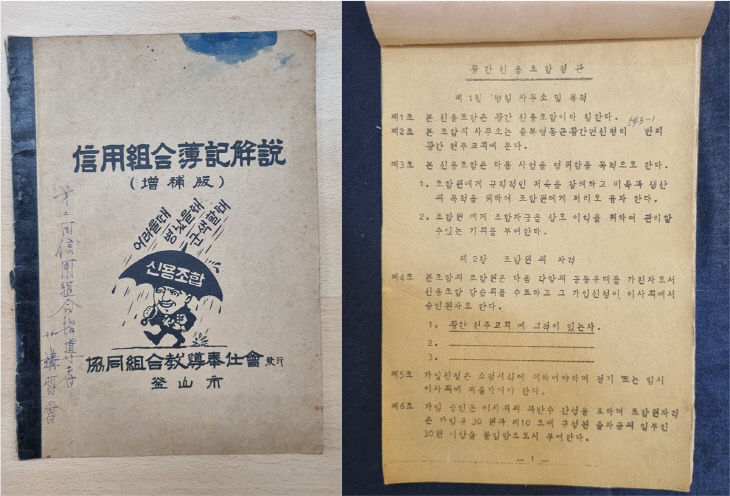 信用組合簿記解說
(增補版)
어려울때
병났을때
군색할때
신용조합
第二回信用組合指導者
講習會
協同組合敎導奉仕會 發行
釜山市
황간신용조합정관
제1장 명칭 사무소 및 목적
제1조 본 신용조합은 황간 신용조합이라 칭한다.
제2조 본 조합의 사무소는 충북영동군황간면신정리 번지
황간 천주교회에 둔다.
제3조 본 신용조합은 다음 사업을 영위함을 목적으로 한다.
1. 조합원에게 규칙적인 저축을 장려하고 비축과 생산
의 목적을 위하여 조합원에게 저리로 융자 한다.
2. 조합원 에게 조합자금을 상호 이익을 위하여 관리할
수있는 기회를 부여한다.
제2장 조합원 의 자격
제4조 본조합의 조합원은 다음 각항의 공동유대를 가진자로서
신용조합 강습회를 수료하고 그 가입신청이 이사회에서
승인된자로 한다.
1. 황간 천주교회 에 그적이 있는자.
2.
3.
제5조 가입신청은 소정서식에 의하여야하며 정기 또는 임시
이사회에 제출하여야 한다.
제6조 가입 승인은 이사회의 과반수 찬성을 요하며 조합원자격
은 가입금 30원과 제10조에 규정된 출자금의 일부인
30원 이상을 불입함으로서 부여한다.
- 1 -